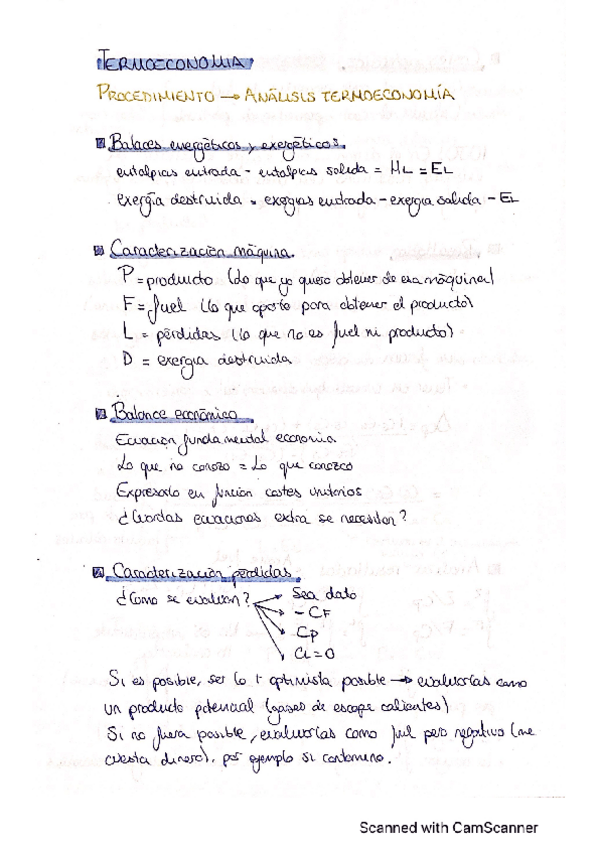 TERMOECONOMIA
PROCEDIMIENTO → ANÁLISIS TERMOECONOMÍA
Balaces energéticos y exergéticos.
entalpias entrada - entalpias salida = HL = EL
exergía destruida = exergias entrada - exergia salida - EL
Caracterización máquina.
P = producto (lo que yo quiero obtener de esa máquina)
F = fuel (lo que aporto para obtener el producto)
L = pérdidas (lo que no es fuel ni producto)
D = exergia destruida
Balance económico
Ecuación fundamental economia
Lo que no conozco = Lo que conozco
Expresarlo en función costes unitarios
¿Cuántas ecuaciones extra se necesitan?
Caracterización pérdidas.
¿Cómo se evaluan? → Sea dato
→ - CF
→ Cp
→ CL = 0
Si es posible, ser lo + optimista posible → evaluarlas como
un producto potencial (gases de escape calientes)
Si no fuera posible, evaluarlas como fuel pero negativo (me
cuesta dinero), por ejemplo si contamino.
Scanned with CamScanner